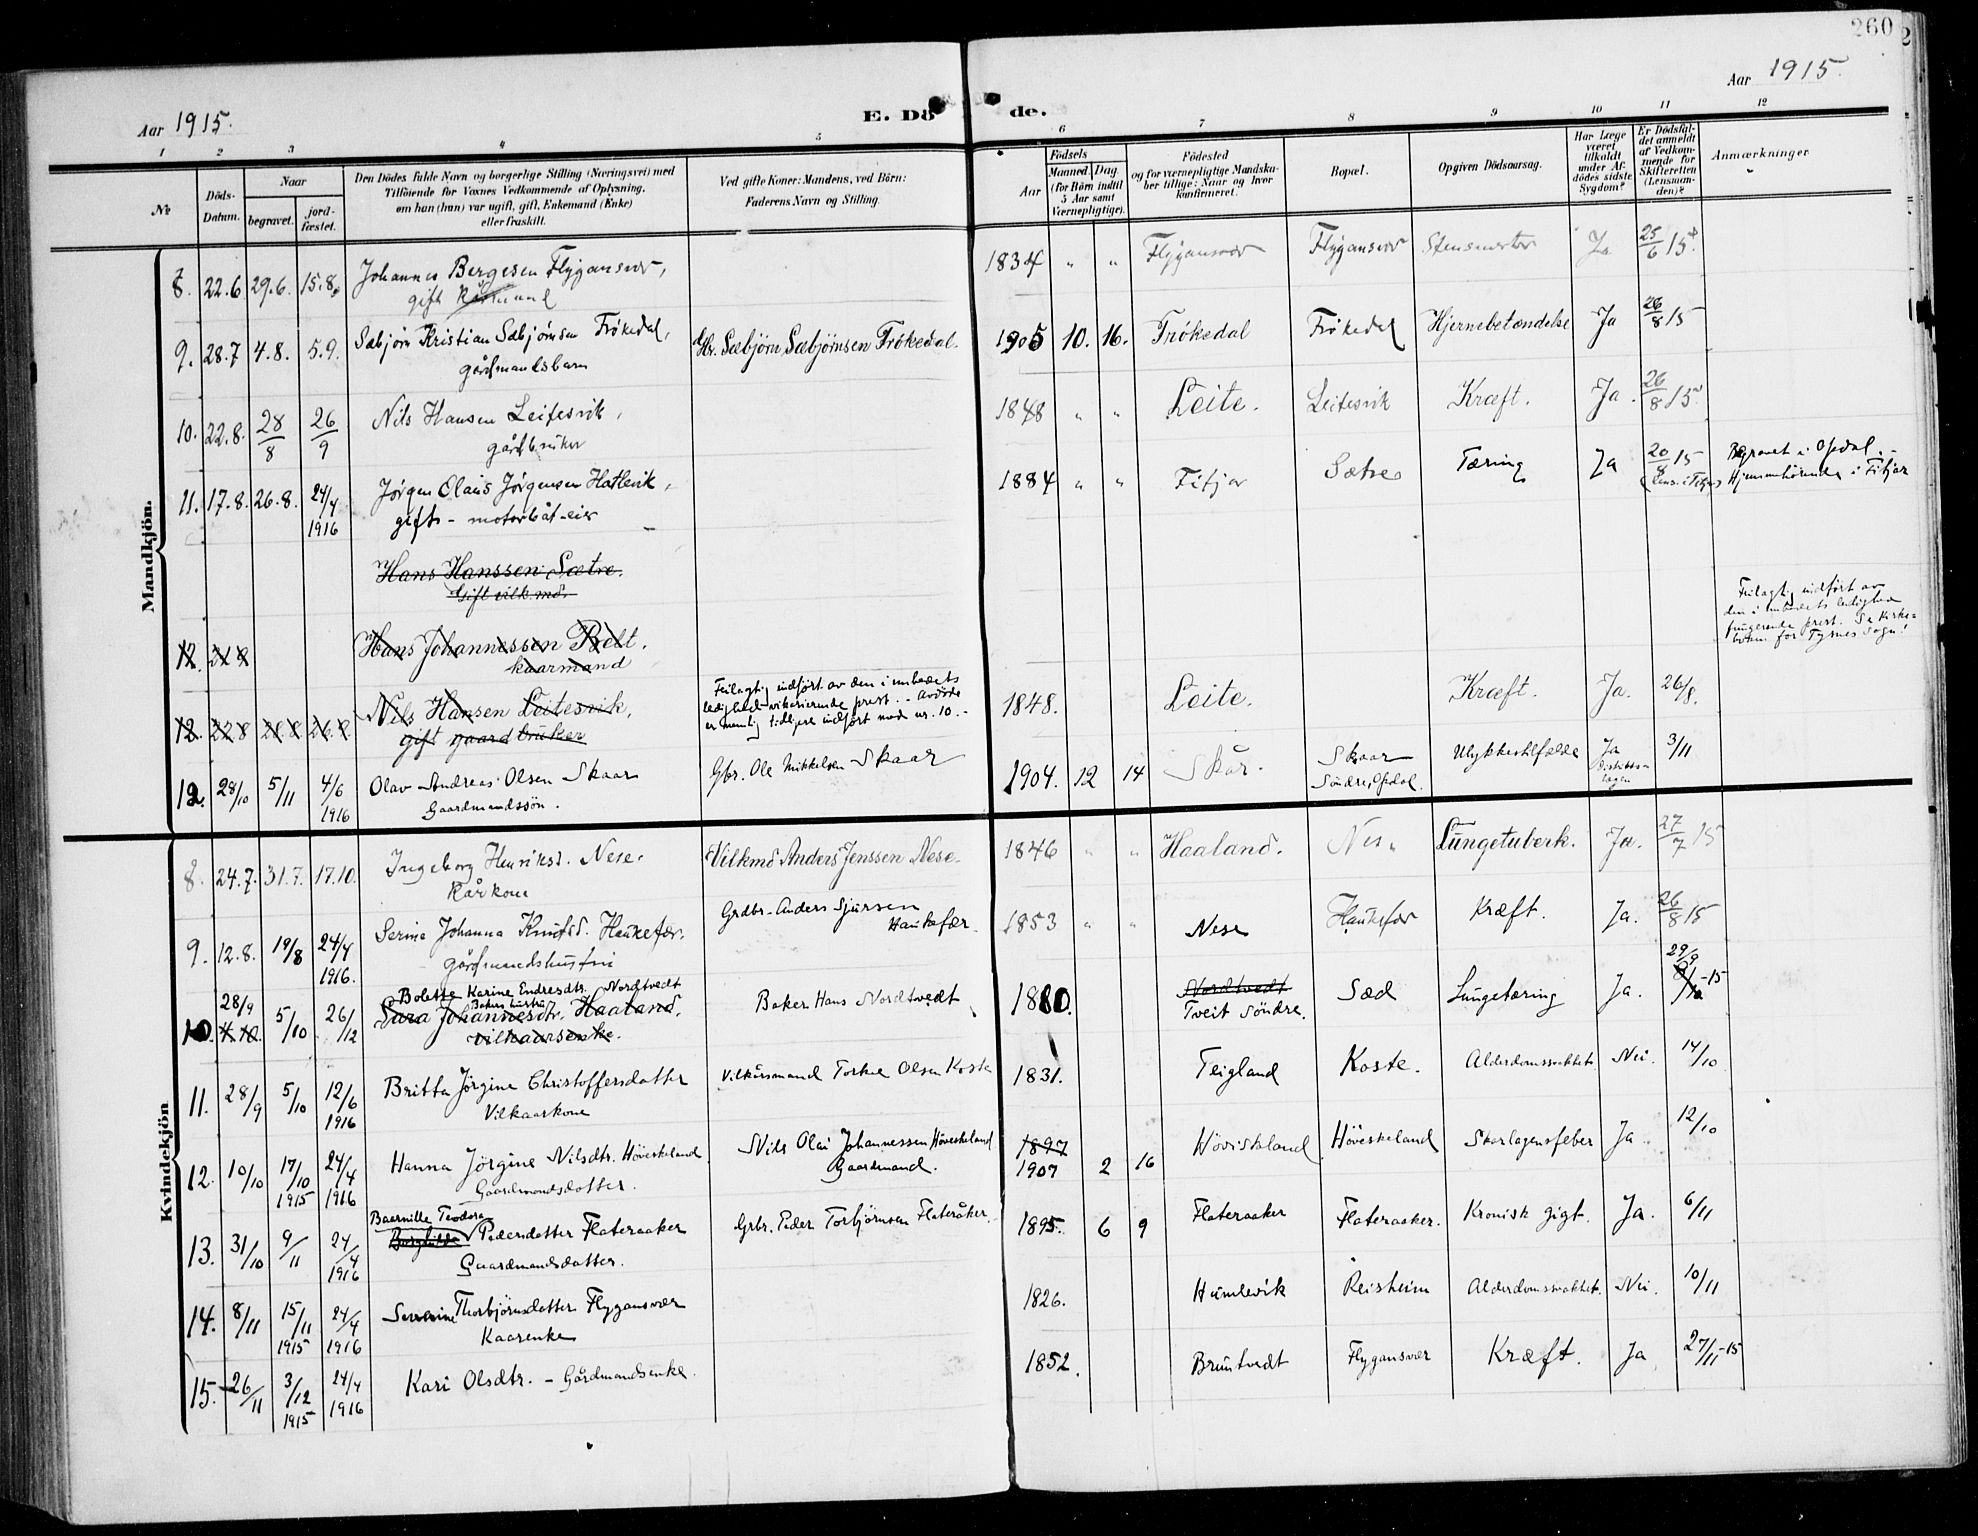 260
Aar 1915.
E. Dö de.
Aar 1915.
1 2 3 4 5 6 7 8 9 10 11 12
№
Döds-Datum.
Naar
begravet.
jord-fæstet.
Den Dödes fulde Navn og borgerlige Stilling (Næringsvei) med
Tilföiende for Voxnes Vedkommende af Oplysning,
om han (hun) var ugift, gift, Enkemand (Enke)
eller fraskilt.
Ved gifte Koner: Mandens, ved Börn:
Faderens Navn og Stilling.
Födsels
Aar
Maaned. Dag
(for Börn indtil
5 Aar samt
Værnepligtige).
Födested
og for værnepligtige Mandska-
ber tillige: Naar og hvor
konfirmeret.
Bopæl.
Opgiven Dödsaarsag.
Har Læge
været
tilkaldt
under Af-
dödes sidste
Sygdom?
Er Dödsfal-
det anmeldt
af Vedkom-
mende for
Skifteretten
(Lensman-
den)?
Anmærkninger
Mandkjön.
8. 22.6 29.6. 15.8. Johannes Bergesen Flygansvær, 1834 " " Flygansvær Flygansvær Ja 25/6 15
gift Kårmand
9. 28.7 4.8. 5.9. Sæbjørn Kristian Sæbjørnsen Frøkedal, Gbr. Sæbjørn Sæbjørnsen Frøkedal. 1905 10. 16. Frøkedal Frøkedal Hjernebetændelse Ja 26/8 15
gårdmandsbarn
10. 22.8. 28/8 26/9 Nils Hansen Leitesvik, 1848 " " Leite. Leitesvik Kræft. Ja. 26/8 15
gårdbruker
11. 17.8. 26.8. 24/4 1916 Jørgen Olaus Jørgensen Hatlevik, 1884 " " Fitjar Sætre Tæring Ja 20/8 15 Lens. i Fitjar Begravet i Opdal. - Hjemmehørende i Fitjar
gift - motorbåt-eier
Hans Hanssen Sætre.
Gift vilk.md.
12. Hans Johannessen Belt.
kaarmand
Feilagtig indført av
den i embedets ledighed
fungerende prest. Se kirke-
boken for Tysnes Sogn!
12. 22 8 26.8 Nils Hansen Leitesvik, 1848. Leite. Kræft. Ja. 26/8.
gift gaardbruker
Feilagtig indført av den i embedets
ledighed vikarierende prest. - Avdøde
er nemlig tidligere indført med nr. 10. -
12. 28/10 5/11 4/6 1916 Olav Andreas Olsen Skaar Gbr. Ole Mikkelsen Skaar 1904. 12 14 Skår. Skaar Söndre, Opdal. Ulykkestilfælde Ja 3/11
Gaardmandssön.
Kvindekjön
8. 24.7. 31.7. 17.10. Ingeborg Henriksd. Nese. Vilkmd Anders Jenssen Nese. 1846 " " Haaland. Nese Lungetuberk. Ja. 27/7 15
kårkone
9. 12.8. 19/8 24/4 1916. Serine Johanna Knutsd. Haukefær. Grdbr. Anders Sjursen Haukefær. 1853 " " Nese Haukefær Kræft. Ja. 26/8 15
gårdmandshustru
Bolette Karine Endresdtr. Nordtvedt
Bakers hustru
10. 28/9 5/10 26/12 Sara Johannesdtr. Haaland. Baker Hans Nordtvedt 1880. Nordtvedt Tveit Söndre. Sæd Lungetæring Ja. 29/9 -15
vilkaarsenke.
11. 28/9 5/10 12/6 1916 Britta Jörgine Christoffersdatter Vilkårsmand Torkel Olsen Koste 1831. Teigland Koste. Alderdomssvakhet Nei. 14/10
Vilkaarkone
12. 10/10 17/10 1915 24/4 1916 Hanna Jörgine Nilsdtr. Höveskeland Nils Olai Johannessen Höveskeland Gaardmand. 1897 1907 2 16 Höviskeland Höveskeland Skarlagensfeber Ja. 12/10
Gaardmandsdatter.
Baernille Teodora
13. 31/10 9/11 24/4 1916 Borghilda Pedersdatter Flateraaker Grbr. Peder Torbjörnsen Flateråker. 1895. 6 9 Flateraaker Flateraaker. Kronisk gigt. Ja. 6/11
Gaardmandsdatter.
14. 8/11 15/11 1915 24/4 1916 Severine Thorbjörnsdatter Flygansvær 1826. Humlevik Reisheim Alderdomssvakhet. Nei. 10/11
Kaarenke
15. 26/11 3/12 1915 24/4 1916 Kari Olsdtr. - Gårdmandsenke. 1852. Bruntvedt Flygansvær Kræft. Ja 27/11-15